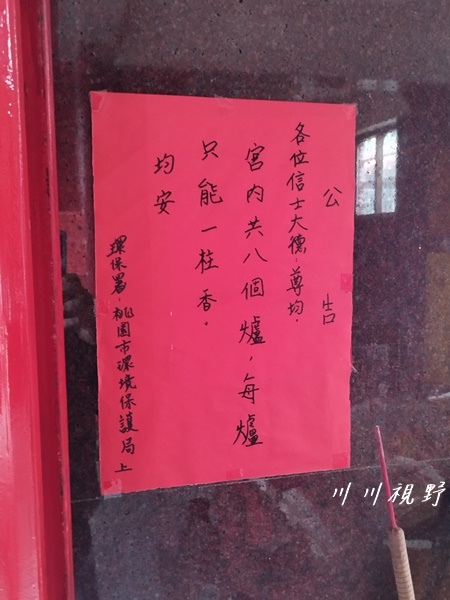 公告
各位信士大德．尊均．
宮内共八個爐，每爐
只能一柱香．
均安
環保署．桃園市環境保護局上
川川視野